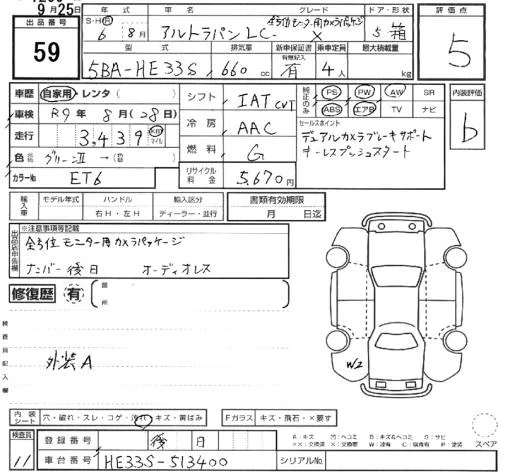 9月25日
出品番号
59
年式 車名 グレード ドア・形状
S・H・R 6年 8月 アルトラパンLC 全方位モニター用カメラパッケージ X 5 箱
型式 排気量 新車保証書 乗車定員 最大積載量
5BA-HE33S 660cc 有 4人 kg
評価点
5
車歴 自家用・レンタ
車検 R9年8月(28日)
走行 3,439 km マイル
色 グリーンⅡ →
カラーNo ET6
シフト IAT CVT
冷房 AAC
燃料 G
リサイクル料金 5,670円
純正のみ PS PW AW SR
ABS エアB TV ナビ
セールスポイント
デュアルカメラブレーキサポート
キーレスプッシュスタート
内装評価
b
輸入車 モデル年式 ハンドル 輸入区分
右H・左H ディーラー・並行
書類有効期限
月 日迄
※注意事項等記載
全方位モニター用カメラパッケージ
ナンバー後日 オーディオレス
修復歴 有
箇所
検査員記入欄
外装A
W2
内装シート 穴・破れ・スレ・コゲ・汚れ・キズ・黄ばみ
Fガラス キズ・飛石・×要す
スペア
検査員
11
登録番号 後日
車台番号 HE33S-513400
シリアルNo.